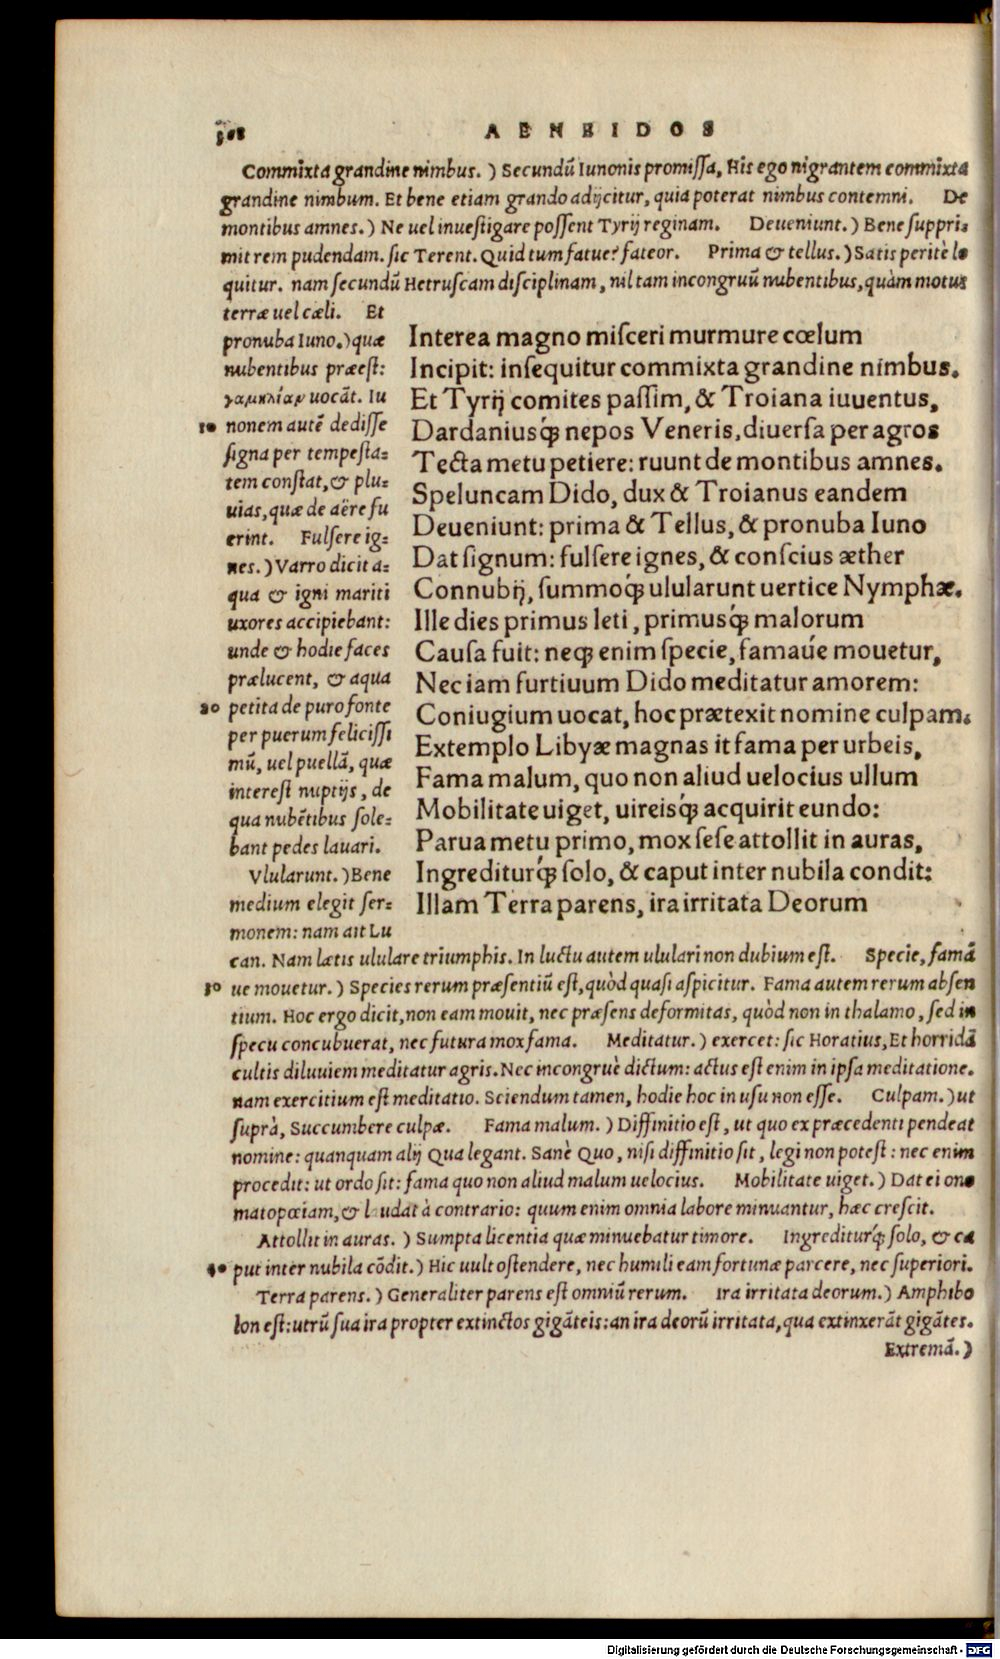 308
AENEIDOS
Commixta grandine nimbus. ) Secundũ Iunonis promiſſa, His ego nigrantem commixta
grandine nimbum. Et bene etiam grando adijcitur, quia poterat nimbus contemni. De
montibus amnes. ) Ne uel inueſtigare poſſent Tyrij reginam. Deueniunt. ) Bene ſuppri-
mit rem pudendam. ſic Terent. Quid tum fatue? fateor. Prima & tellus. ) Satis peritè lo
quitur. nam ſecundũ Hetruſcam diſciplinam, nil tam incongruũ nubentibus, quàm motus
terræ uel cæli. Et
pronuba Iuno. ) quæ
nubentibus præeſt:
γαμηλίαν uocãt. Iu
10 nonem autẽ dediſſe
ſigna per tempeſta-
tem conſtat, & plu-
uias, quæ de aëre fu
erint. Fulſere ig-
nes. ) Varro dicit a-
qua & igni mariti
uxores accipiebant:
unde & hodie faces
prælucent, & aqua
20 petita de puro fonte
per puerum feliciſſi
mũ, uel puellã, quæ
intereſt nuptijs, de
qua nubẽtibus ſole-
bant pedes lauari.
Vlularunt. ) Bene
medium elegit ſer-
monem: nam ait Lu
Interea magno miſceri murmure cœlum
Incipit: inſequitur commixta grandine nimbus.
Et Tyrij comites paſſim, & Troiana iuuentus,
Dardaniusq́; nepos Veneris, diuerſa per agros
Tecta metu petiere: ruunt de montibus amnes.
Speluncam Dido, dux & Troianus eandem
Deueniunt: prima & Tellus, & pronuba Iuno
Dat ſignum: fulſere ignes, & conſcius æther
Connubij, ſummoq́; ulularunt uertice Nymphæ.
Ille dies primus leti, primusq́; malorum
Cauſa fuit: neq; enim ſpecie, famaúe mouetur,
Nec iam furtiuum Dido meditatur amorem:
Coniugium uocat, hoc prætexit nomine culpam.
Extemplo Libyæ magnas it fama per urbeis,
Fama malum, quo non aliud uelocius ullum
Mobilitate uiget, uireisq́; acquirit eundo:
Parua metu primo, mox ſeſe attollit in auras,
Ingrediturq́; ſolo, & caput inter nubila condit:
Illam Terra parens, ira irritata Deorum
can. Nam lætis ululare triumphis. In luctu autem ululari non dubium eſt. Specie, famã
30 ue mouetur. ) Species rerum præſentiũ eſt, quòd quaſi aſpicitur. Fama autem rerum abſen
tium. Hoc ergo dicit, non eam mouit, nec præſens deformitas, quòd non in thalamo, ſed in
ſpecu concubuerat, nec futura mox fama. Meditatur. ) exercet: ſic Horatius, Et horridã
cultis diluuiem meditatur agris. Nec incongruè dictum: actus eſt enim in ipſa meditatione.
nam exercitium eſt meditatio. Sciendum tamen, hodie hoc in uſu non eſſe. Culpam. ) ut
ſuprà, Succumbere culpæ. Fama malum. ) Diffinitio eſt, ut quo ex præcedenti pendeat
nomine: quanquam alij Qua legant. Sanè Quo, niſi diffinitio ſit, legi non poteſt: nec enim
procedit: ut ordo ſit: fama quo non aliud malum uelocius. Mobilitate uiget. ) Dat ei ono
matopœiam, & laudat à contrario: quum enim omnia labore minuantur, hæc creſcit.
Attollit in auras. ) Sumpta licentia quæ minuebatur timore. Ingrediturq́; ſolo, & ca
40 put inter nubila cõdit. ) Hic uult oſtendere, nec humili eam fortunæ parcere, nec ſuperiori.
Terra parens. ) Generaliter parens eſt omniũ rerum. Ira irritata deorum. ) Amphibo
lon eſt: utrũ ſua ira propter extinctos gigãteis: an ira deorũ irritata, qua extinxerãt gigãtes.
Extremã. )
Digitalisierung gefördert durch die Deutsche Forschungsgemeinschaft - DFG